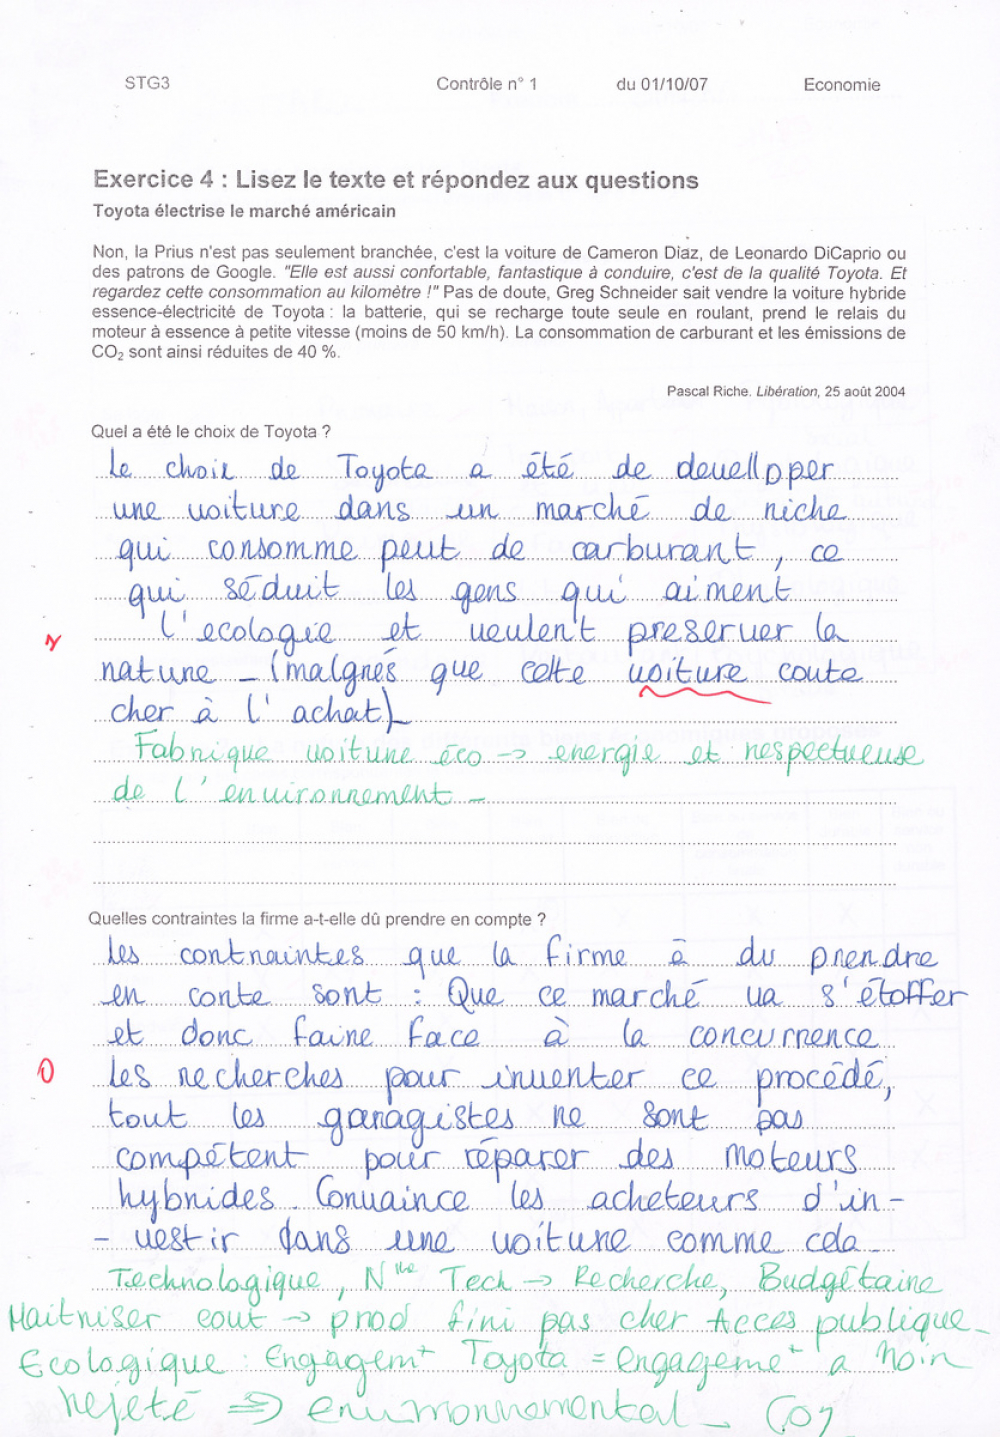 STG3 Contrôle n° 1 du 01/10/07 Economie
Exercice 4 : Lisez le texte et répondez aux questions
Toyota électrise le marché américain
Non, la Prius n'est pas seulement branchée, c'est la voiture de Cameron Diaz, de Leonardo DiCaprio ou
des patrons de Google. "Elle est aussi confortable, fantastique à conduire, c'est de la qualité Toyota. Et
regardez cette consommation au kilomètre !" Pas de doute, Greg Schneider sait vendre la voiture hybride
essence-électricité de Toyota : la batterie, qui se recharge toute seule en roulant, prend le relais du
moteur à essence à petite vitesse (moins de 50 km/h). La consommation de carburant et les émissions de
CO₂ sont ainsi réduites de 40 %.
Pascal Riche. Libération, 25 août 2004
Quel a été le choix de Toyota ?
Le choix de Toyota a été de devellpper
une voiture dans un marché de niche
qui consomme peut de carburant, ce
qui séduit les gens qui aiment
l'ecologie et veulent preserver la
nature - (malgrés que cette voiture coute
cher à l'achat)
Fabrique voiture éco -> energie et respectueuse
de l'environnement -
Quelles contraintes la firme a-t-elle dû prendre en compte ?
les contraintes que la firme à du prendre
en conte sont : Que ce marché va s'étoffer
et donc faire face à la concurrence
0 les recherches pour inventer ce procédé,
tout les garagistes ne sont pas
compétent pour réparer des moteurs
hybrides. Convaince les acheteurs d'in-
- vestir dans une voiture comme cela
Technologique, Nlle Tech -> Recherche, Budgétaire
Maitriser cout -> prod fini pas cher Acces publique -
Ecologique : Engagemt Toyota = engagemet a
rejeté => environnemental - CO2